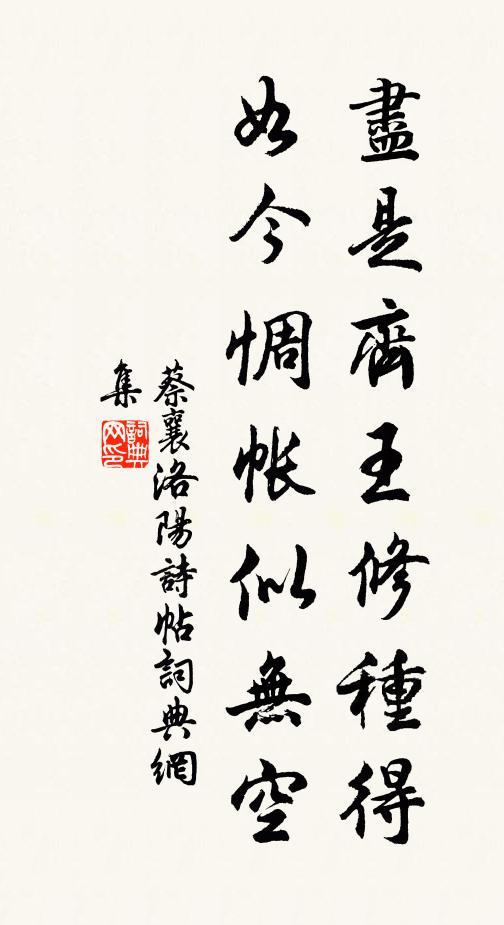 盡是齊王修種得
如今惆帳似無空
蔡襄洛陽詩帖詞典網
集
詞典
网印